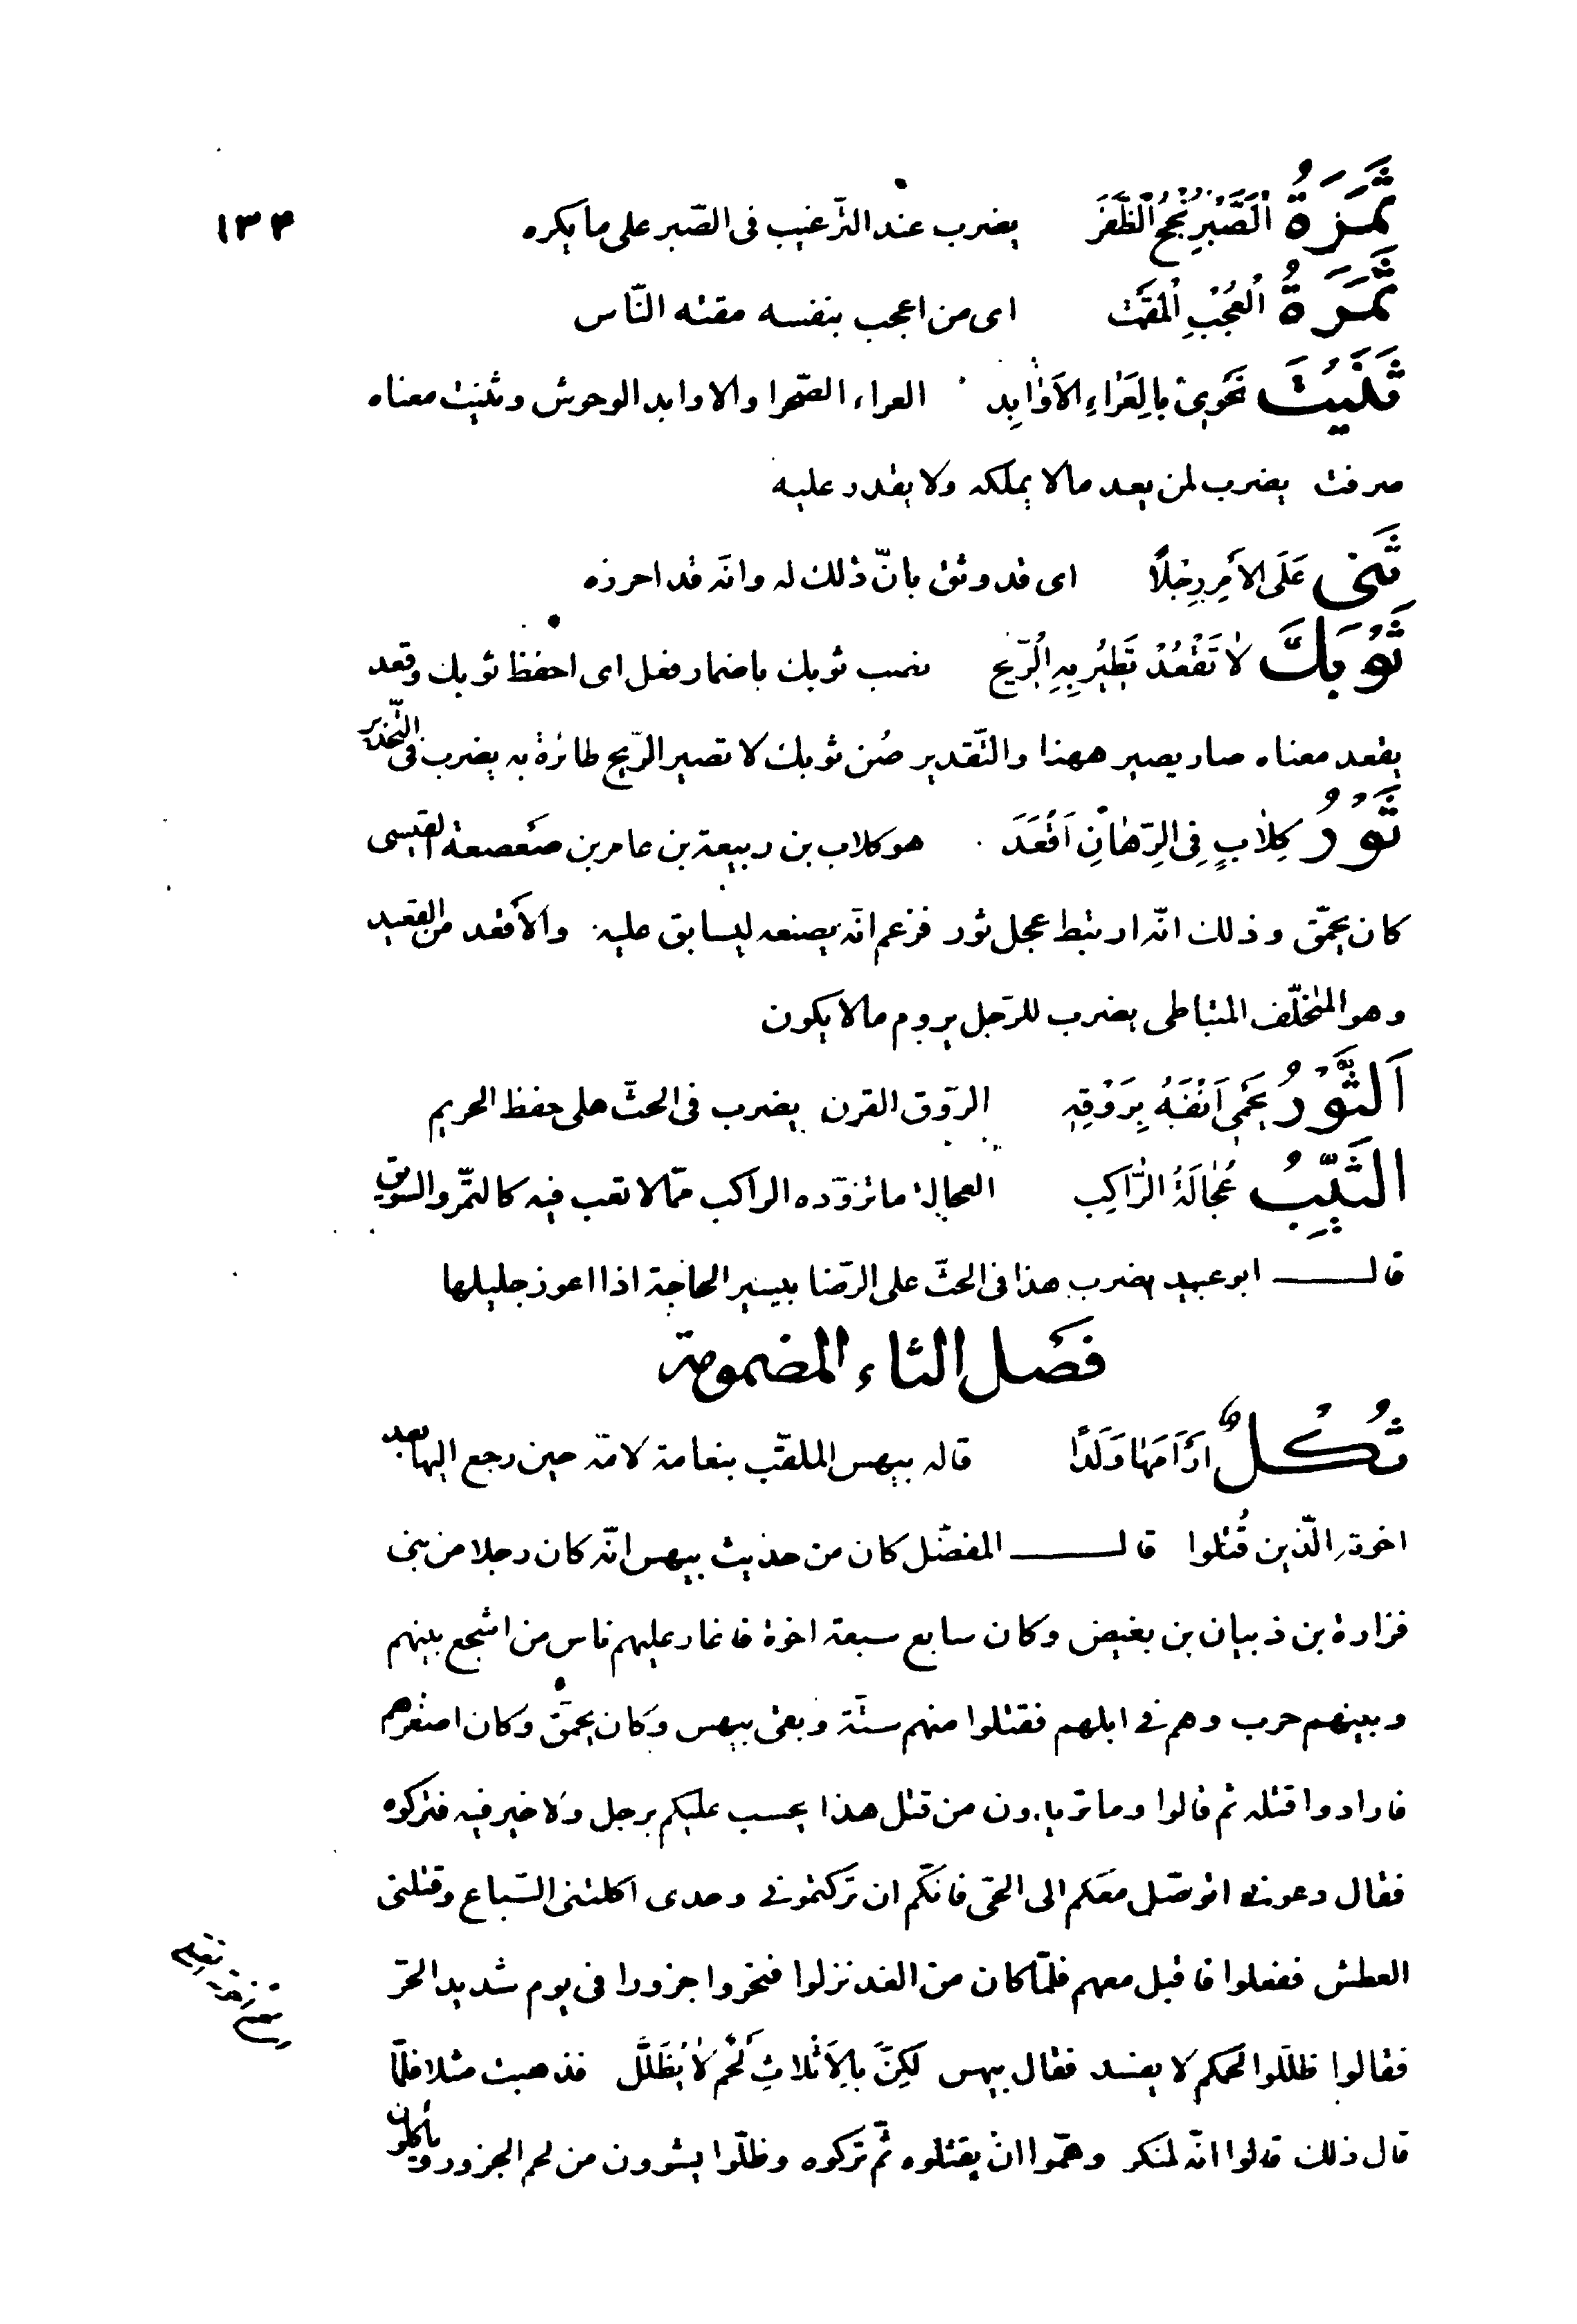 ١٣٤
ثَمَرَةُ اَلصَّبْرِ نُجْحُ الظَّفَرِ يضرب عند الترّغيب فى الصّبر على ما يكره
ثَمَرَةُ الْعُجْبِ الْمَقْتُ اى من اعجب بنفسه مقته النّاس
ثَنَيْتَ نَحْوِىْ بِالعَرَاءِ الاَوٰابِدِ العراء الصّحرا والاوابد الوحوش وثنيت معناه
صرفت يضرب لمن يعد مالا يملكه ولا يقدر عليه
ثَنىٰ عَلَى الاَمْرِ رِجْلاً اى قد وثق بانّ ذلك له وانّه قد احرزه
ثَوْبَكَ لاٰ تَقْعُدْ تَطِيْرُ بِهِ الْرّيحُ نصب ثوبك باضمار فعل اى احفظ ثوبك وقعد
يقعد معناه صار يصير ههنا والتّقدير صُن ثوبك لا تصير الرّيح طائرة به يضرب فى التّحذير
ثَوْرُ كِلاٰبٍ فِى الرِّهٰانِ اَقْعَدَ هو كلاب بن ربيعة بن عامر بن صَعصعة القيسى
كان يحمّق وذلك انّه ارتبط عجل ثور فزعم انّه يصنعه ليسابق عليه والاَقعد من القعيد
وهو المتخلّف المتباطى يضرب للرّجل يروم مالا يكون
اَلثَّوْرُ يَحْمِى اَنْفَهُ بِرَوْقِهٖ الرّوق القرن يضرب فى الحثّ على حفظ الحريم
الثَّيِّبُ عُجٰالَةُ الرّٰاكِبِ العجالة ما تزوّده الراكب ممّا لا تعب فيه كالتّمر والسّويق
قال ابو عبيد يضرب هذا فى الحثّ على الرّضا بيسير الحاجة اذا اعوز جليلها
فصَل الثاء المضمومة
ثُكْلٌ اَرْاَمَهٰا وَلَدًا قاله بيهس الملقّب بنعامة لامّه حين رجع اليها بعد
اخوته الّذين قُتلوا قال المفضّل كان من حديث بيهس انّه كان رجلا من بنى
فزارة بن ذبيان بن بغيض وكان سابع سبعة اخوة فاغار عليهم ناس من اشجع بينهم
وبينهم حرب وهم فى ابلهم فقتلوا منهم ستّة وبقى بيهس وكان يحمّق وكان اصغرهم
فارادوا قتله ثم قالوا وما تريدون من قتل هذا يحسب عليكم برجل ولا خير فيه فتركوه
فقال دعونى اتوصّل معكم الى الحىّ فانّكم ان تركتمونى وحدى اكلتنى السّباع وقتلنى
العطش ففعلوا فاقبل معهم فلمّا كان من الغد نزلوا فنحروا جزورا فى يوم شديد الحرّ
فقالوا ظلّلوا لحمكم لا يفسد فقال بيهس لٰكِنَّ بِالاَثْلاٰثِ لَحْمٌ لاٰ يُظَلَّلُ فذهبت مثلا فلمّا
قال ذلك قالوا انّه لمنكر وهمّوا ان يقتلوه ثمّ تركوه وظلّوا يشوون من لحم الجزور وياكلون